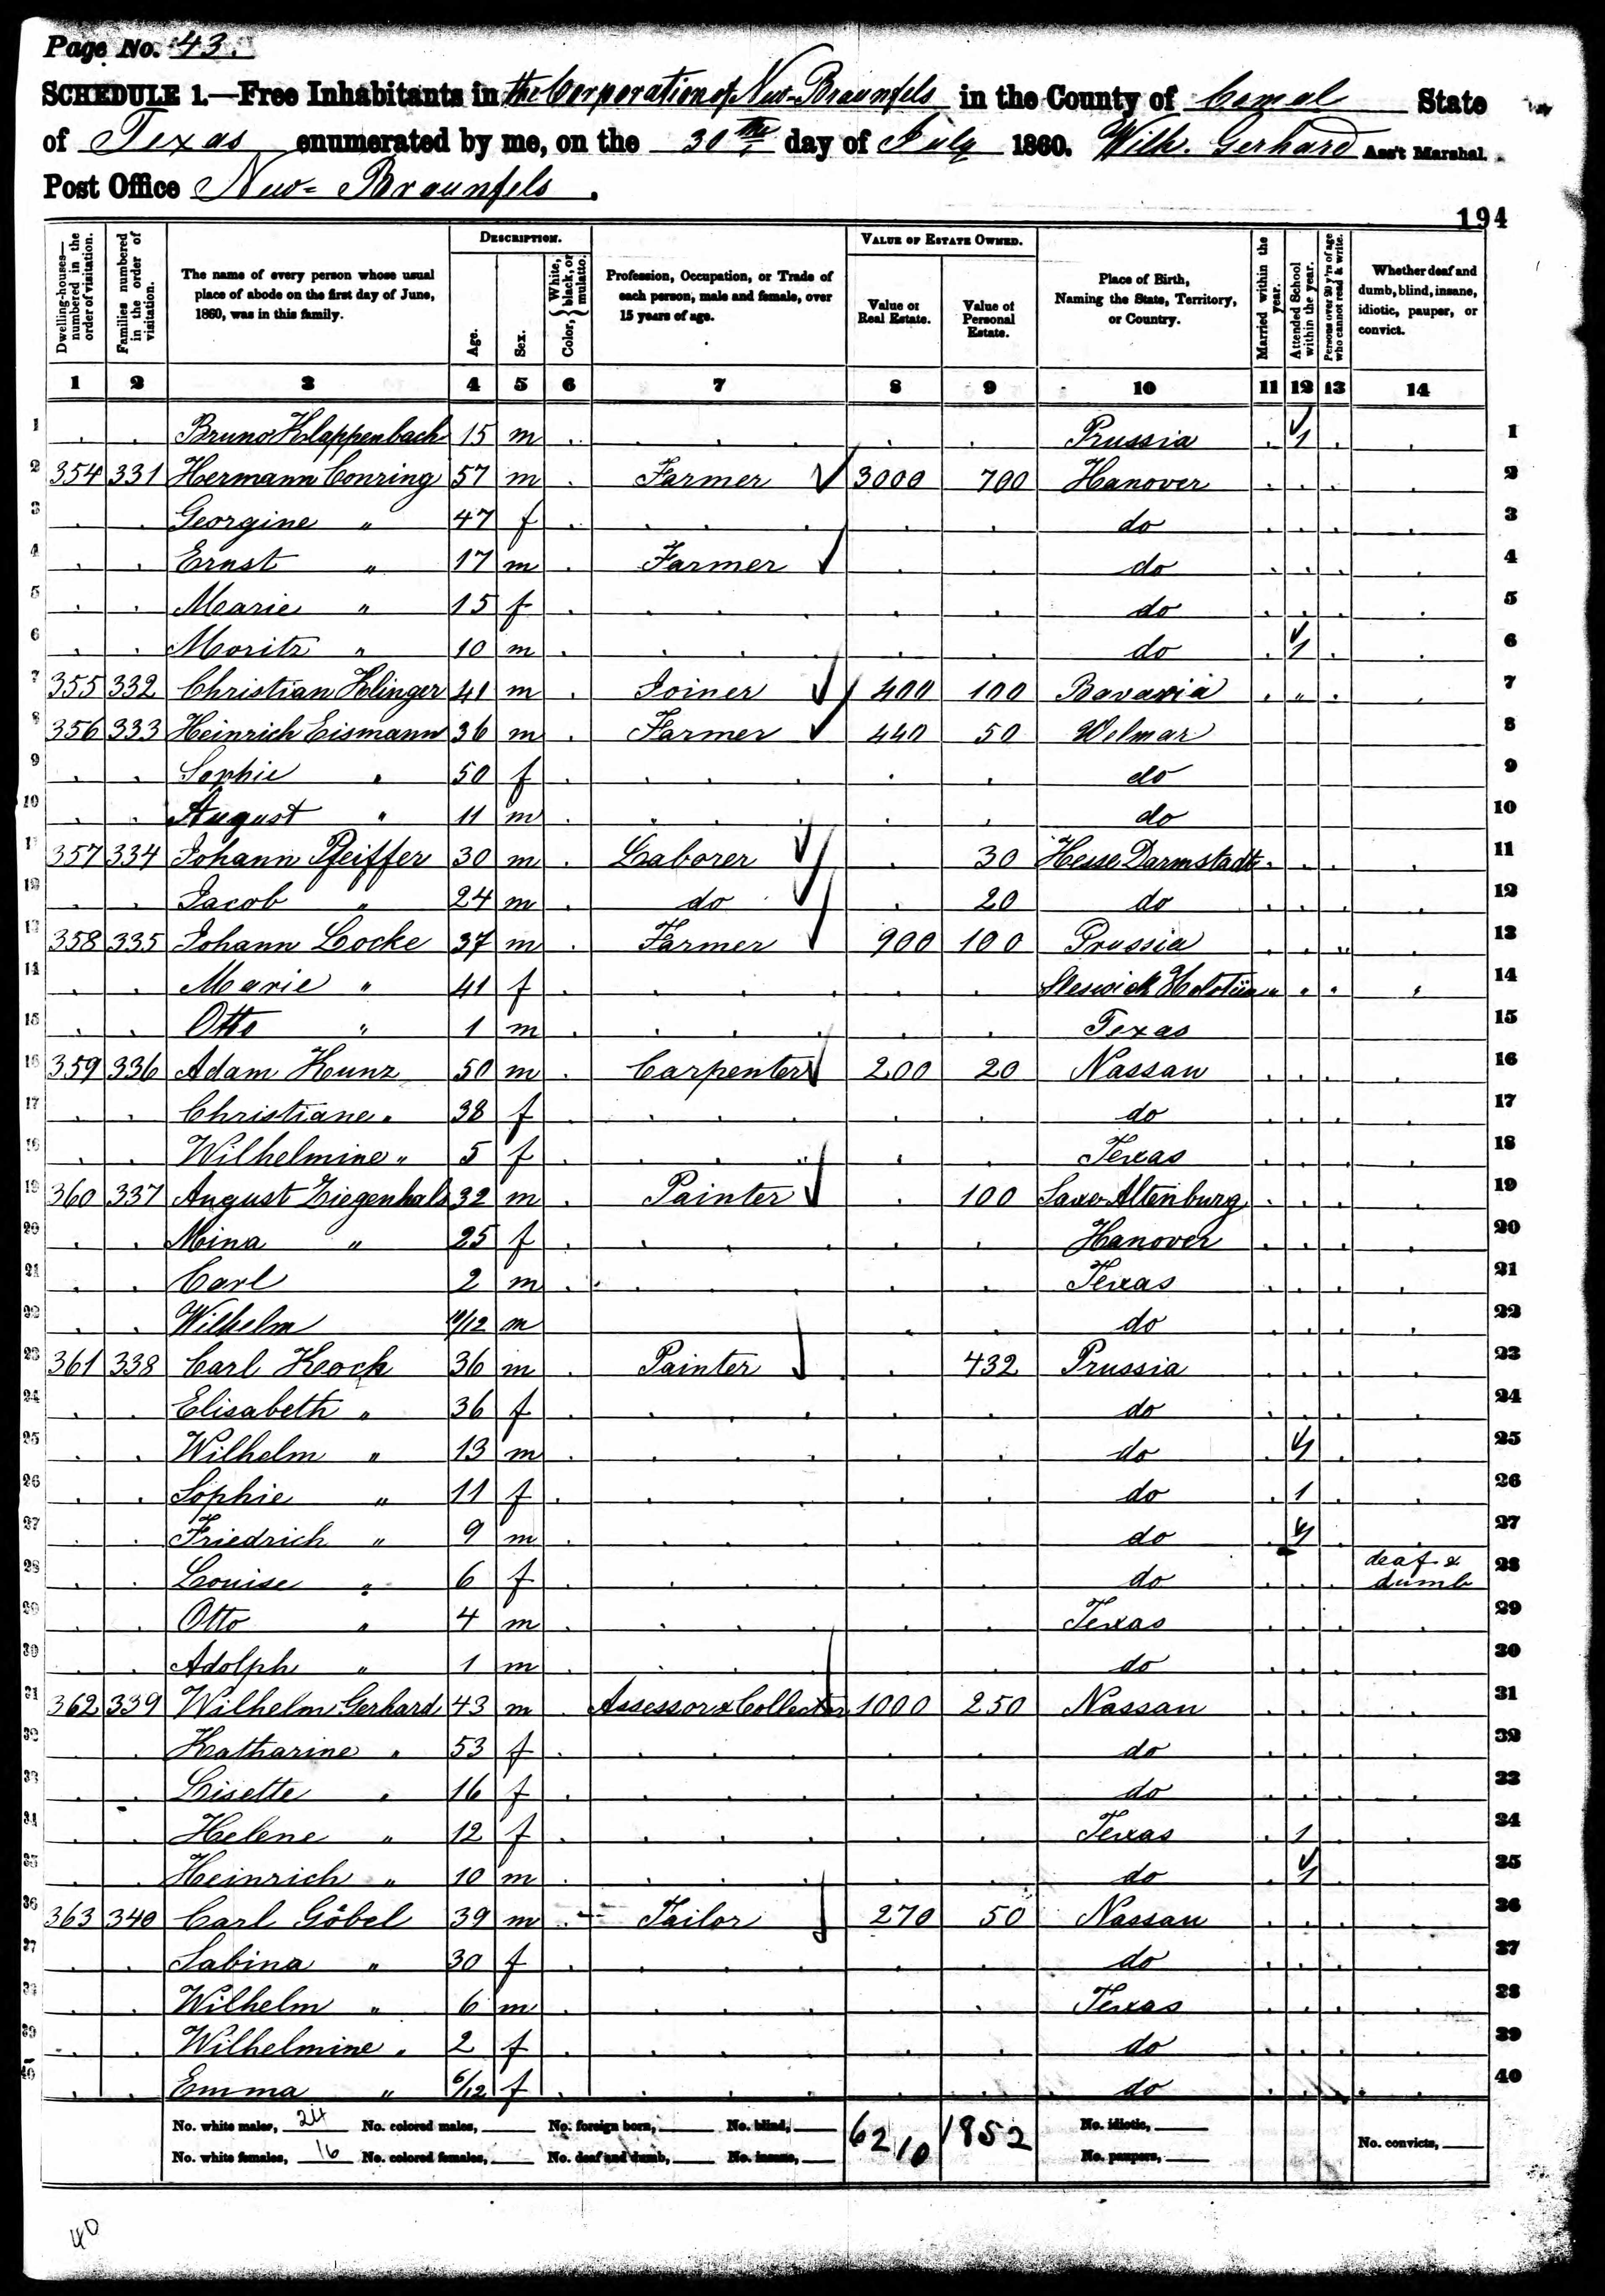 Page No. 43.
SCHEDULE 1.—Free Inhabitants in the Corporation of New-Braunfels in the County of Comal State
of Texas enumerated by me, on the 30th day of July 1860. Wilh. Gerhard Ass't Marshal.
Post Office New-Braunfels.
194
Dwelling-houses—numbered in the order of visitation. Families numbered in the order of visitation. The name of every person whose usual place of abode on the first day of June, 1860, was in this family. DESCRIPTION. Age. Sex. Color, { White, black, or mulatto. Profession, Occupation, or Trade of each person, male and female, over 15 years of age. VALUE OF ESTATE OWNED. Value of Real Estate. Value of Personal Estate. Place of Birth, Naming the State, Territory, or Country. Married within the year. Attended School within the year. Persons over 20 y'rs of age who cannot read & write. Whether deaf and dumb, blind, insane, idiotic, pauper, or convict.
1 2 3 4 5 6 7 8 9 10 11 12 13 14
1 Bruno Klappenbach 15 m Prussia 1 1
2 354 331 Hermann Conring 57 m Farmer 3000 700 Hanover 2
3 Georgine " 47 f do 3
4 Ernst " 17 m Farmer do 4
5 Marie " 15 f do 5
6 Moritz " 10 m do 1 6
7 355 332 Christian Klinger 41 m Joiner 400 100 Bavaria 7
8 356 333 Heinrich Eismann 36 m Farmer 440 50 Welmar 8
9 Sophie " 50 f do 9
10 August " 11 m do 10
11 357 334 Johann Pfeiffer 30 m Laborer 30 Hesse Darmstadt 11
12 Jacob " 24 m do 20 do 12
13 358 335 Johann Locke 37 m Farmer 900 100 Prussia 13
14 Marie " 41 f Sleswick Holstein 14
15 Otto " 1 m Texas 15
16 359 336 Adam Kunz 50 m Carpenter 200 20 Nassau 16
17 Christiane " 38 f do 17
18 Wilhelmine " 5 f Texas 18
19 360 337 August Ziegenhals 32 m Painter 100 Saxe Altenburg 19
20 Mina " 25 f Hanover 20
21 Carl 2 m Texas 21
22 Wilhelm m do 22
23 361 338 Carl Koch 36 m Painter 432 Prussia 23
24 Elisabeth " 36 f do 24
25 Wilhelm " 13 m do 1 25
26 Sophie " 11 f do 1 26
27 Friedrich " 9 m do 1 27
28 Louise " 6 f do deaf & dumb 28
29 Otto " 4 m Texas 29
30 Adolph " 1 m do 30
31 362 339 Wilhelm Gerhard 43 m Assessor & Collector 1000 250 Nassau 31
32 Katharine " 53 f do 32
33 Lisette " 16 f do 33
34 Helene " 12 f Texas 1 34
35 Heinrich " 10 m do 1 35
36 363 340 Carl Göbel 39 m Tailor 270 50 Nassau 36
37 Sabina " 30 f do 37
38 Wilhelm " 6 m Texas 38
39 Wilhelmine " 2 f do 39
40 Emma " 6/12 f do 40
No. white males, 24 No. colored males, No. foreign born, No. blind, 6210 1852 No. idiotic,
No. white females, 16 No. colored females, No. deaf and dumb, No. insane, No. paupers, No. convicts,
40